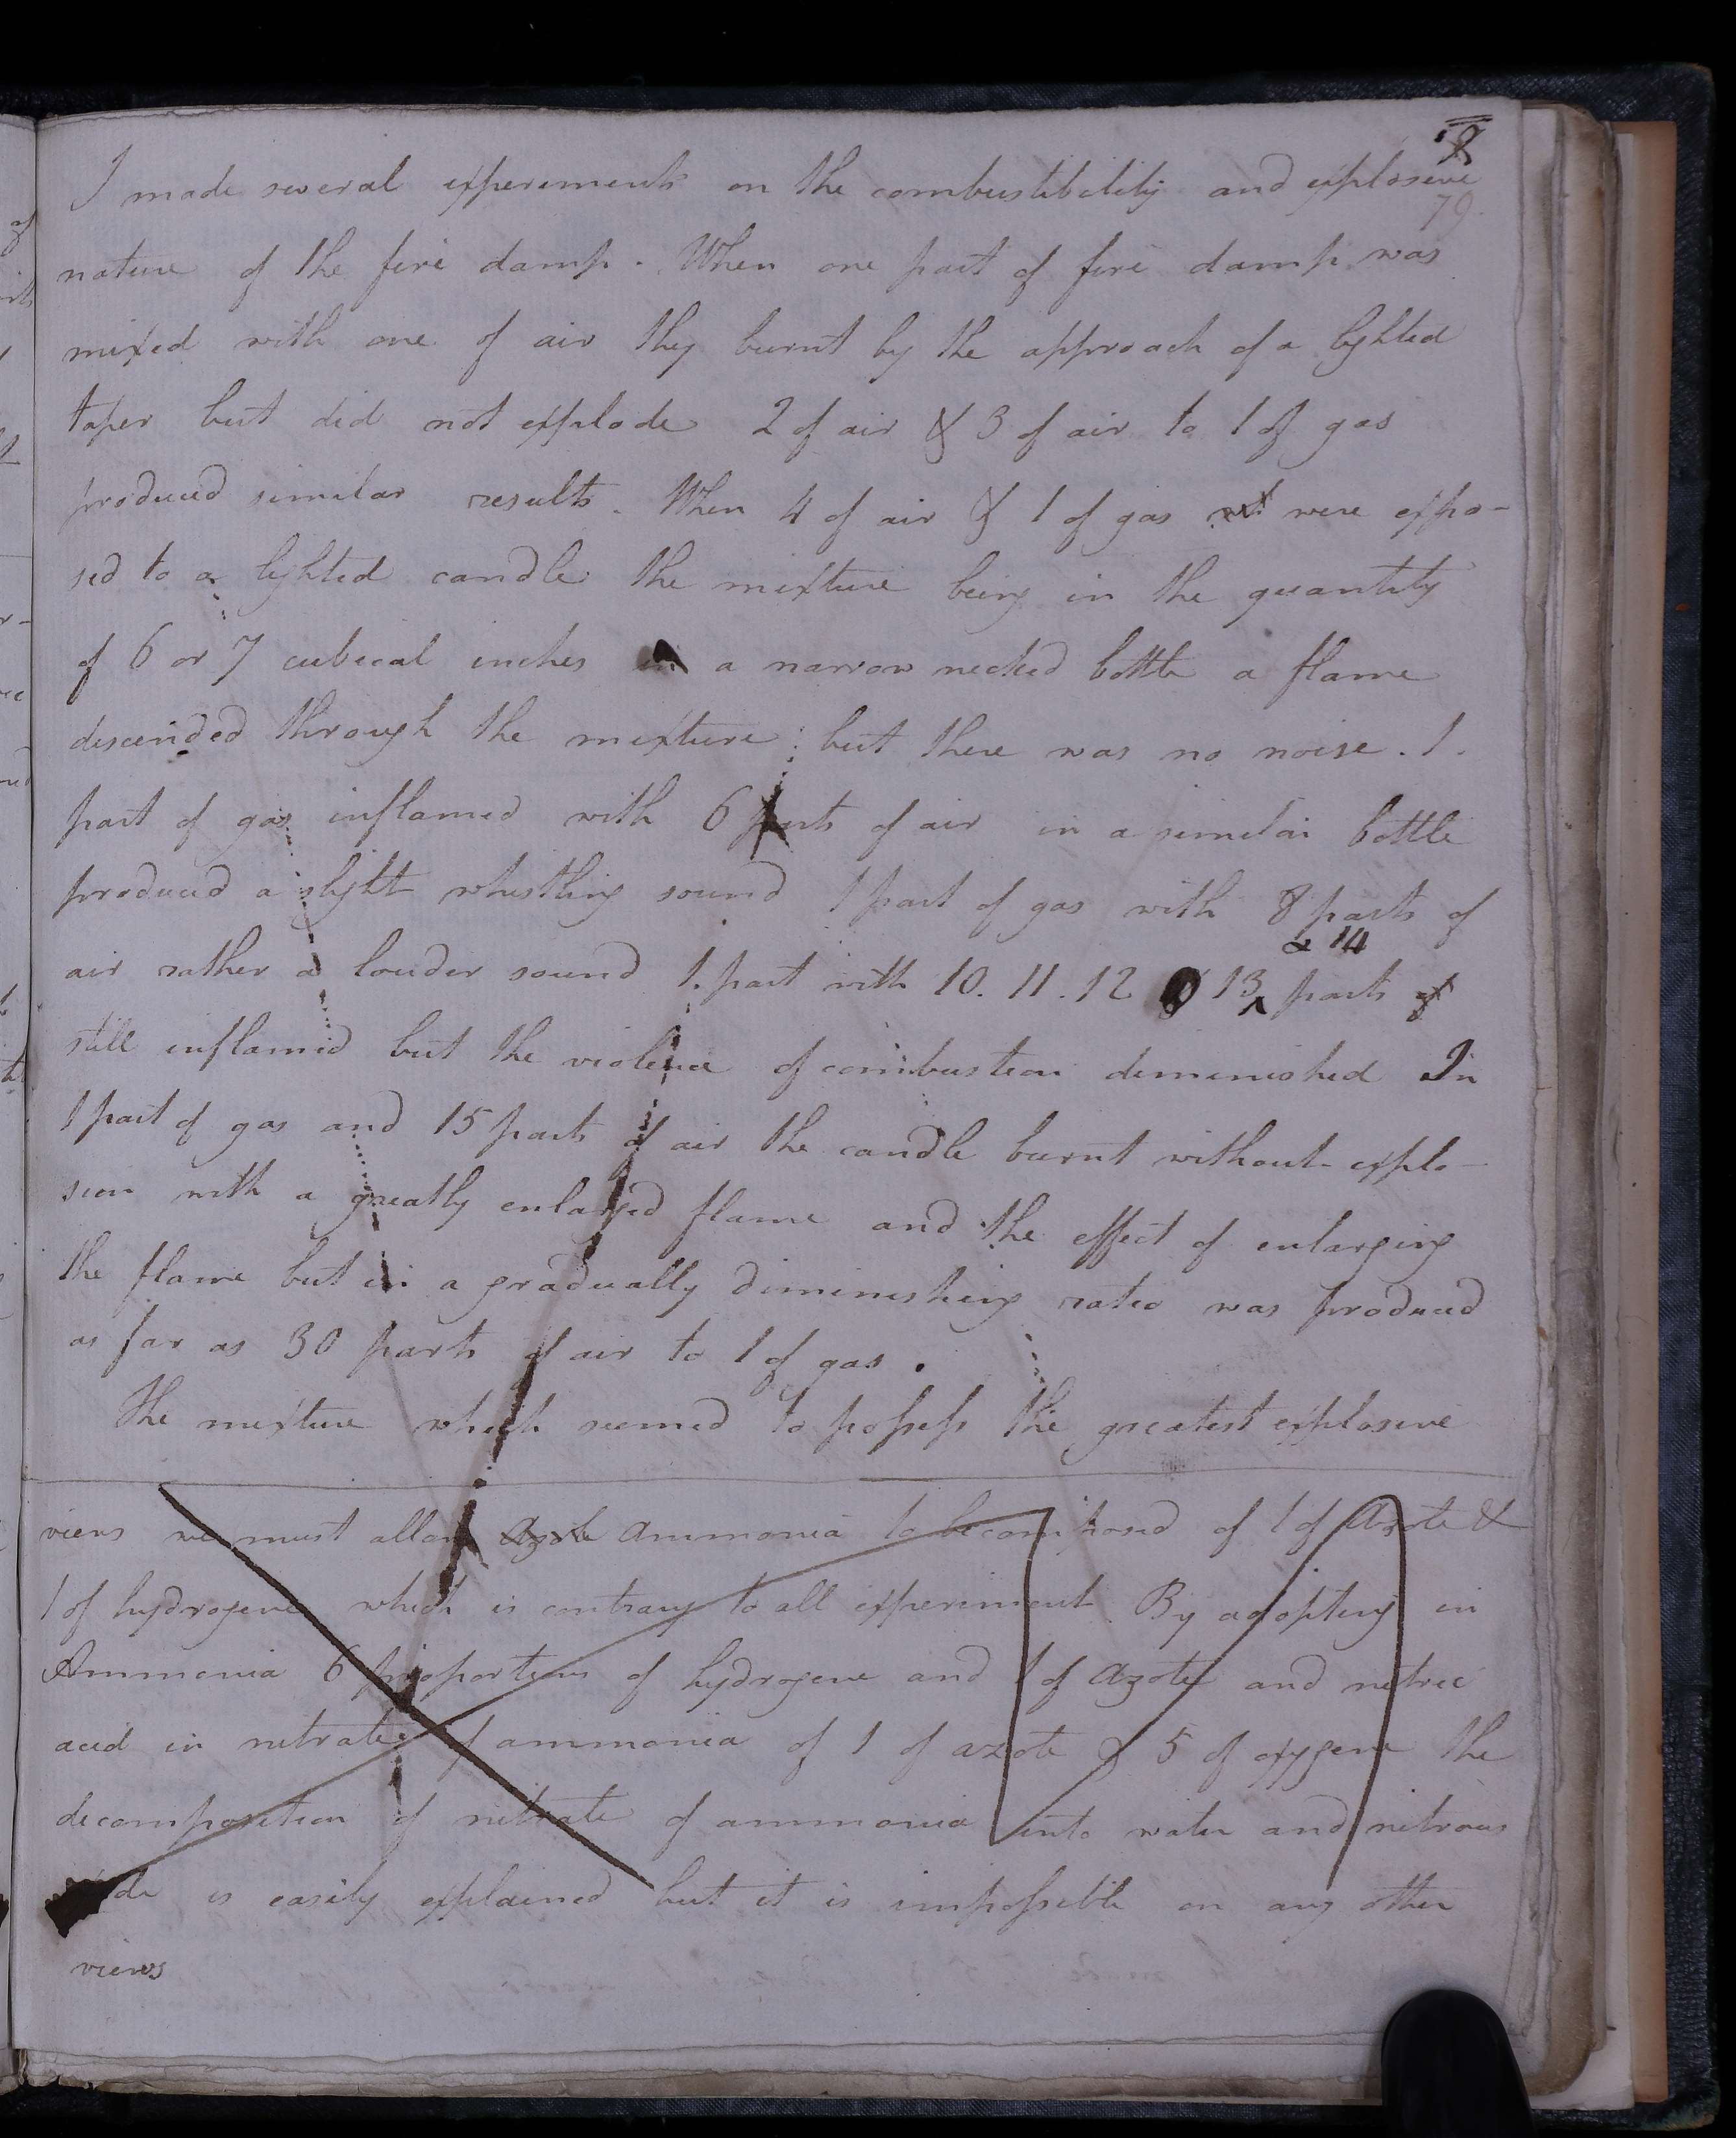 79
I made several experiments on the combustibility and explosive
nature of the fire damp. When one part of fire damp was
mixed with one of air they burnt by the approach of a lighted
taper but did not explode 2 of air & 3 of air to 1 of gas
produced similar results. When 4 of air & 1 of gas were expo-
sed to a lighted candle the mixture being in the quantity
of 6 or 7 cubical inches in a narrow necked bottle a flame
descended through the mixture but there was no noise. 1.
part of gas inflamed with 6 parts of air in a similar bottle
produced a slight whistling sound 1 part of gas with 8 parts of
& 14
air rather a louder sound 1. part with 10. 11. 12 13 parts of
still inflamed but the violence of combustion diminished In
1 part of gas and 15 parts of air the candle burnt without explo-
sion with a greatly enlarged flame and the effect of enlarging
the flame but in a gradually diminishing ratio was produced
as far as 30 parts of air to 1 of gas.
The mixture which seemed to possess the greatest explosive
views we must allow Azote Ammonia to be composed of 1 of Azote &
1 of hydrogene which is contrary to all experiment. By adopting in
Ammonia 6 proportions of hydrogene and 1 of Azote and nitric
acid in nitrate of ammonia of 1 of azote & 5 of oxygene the
decomposition of nitrate of ammonia into water and nitrous
is easily explained but it is impossible on any other
views